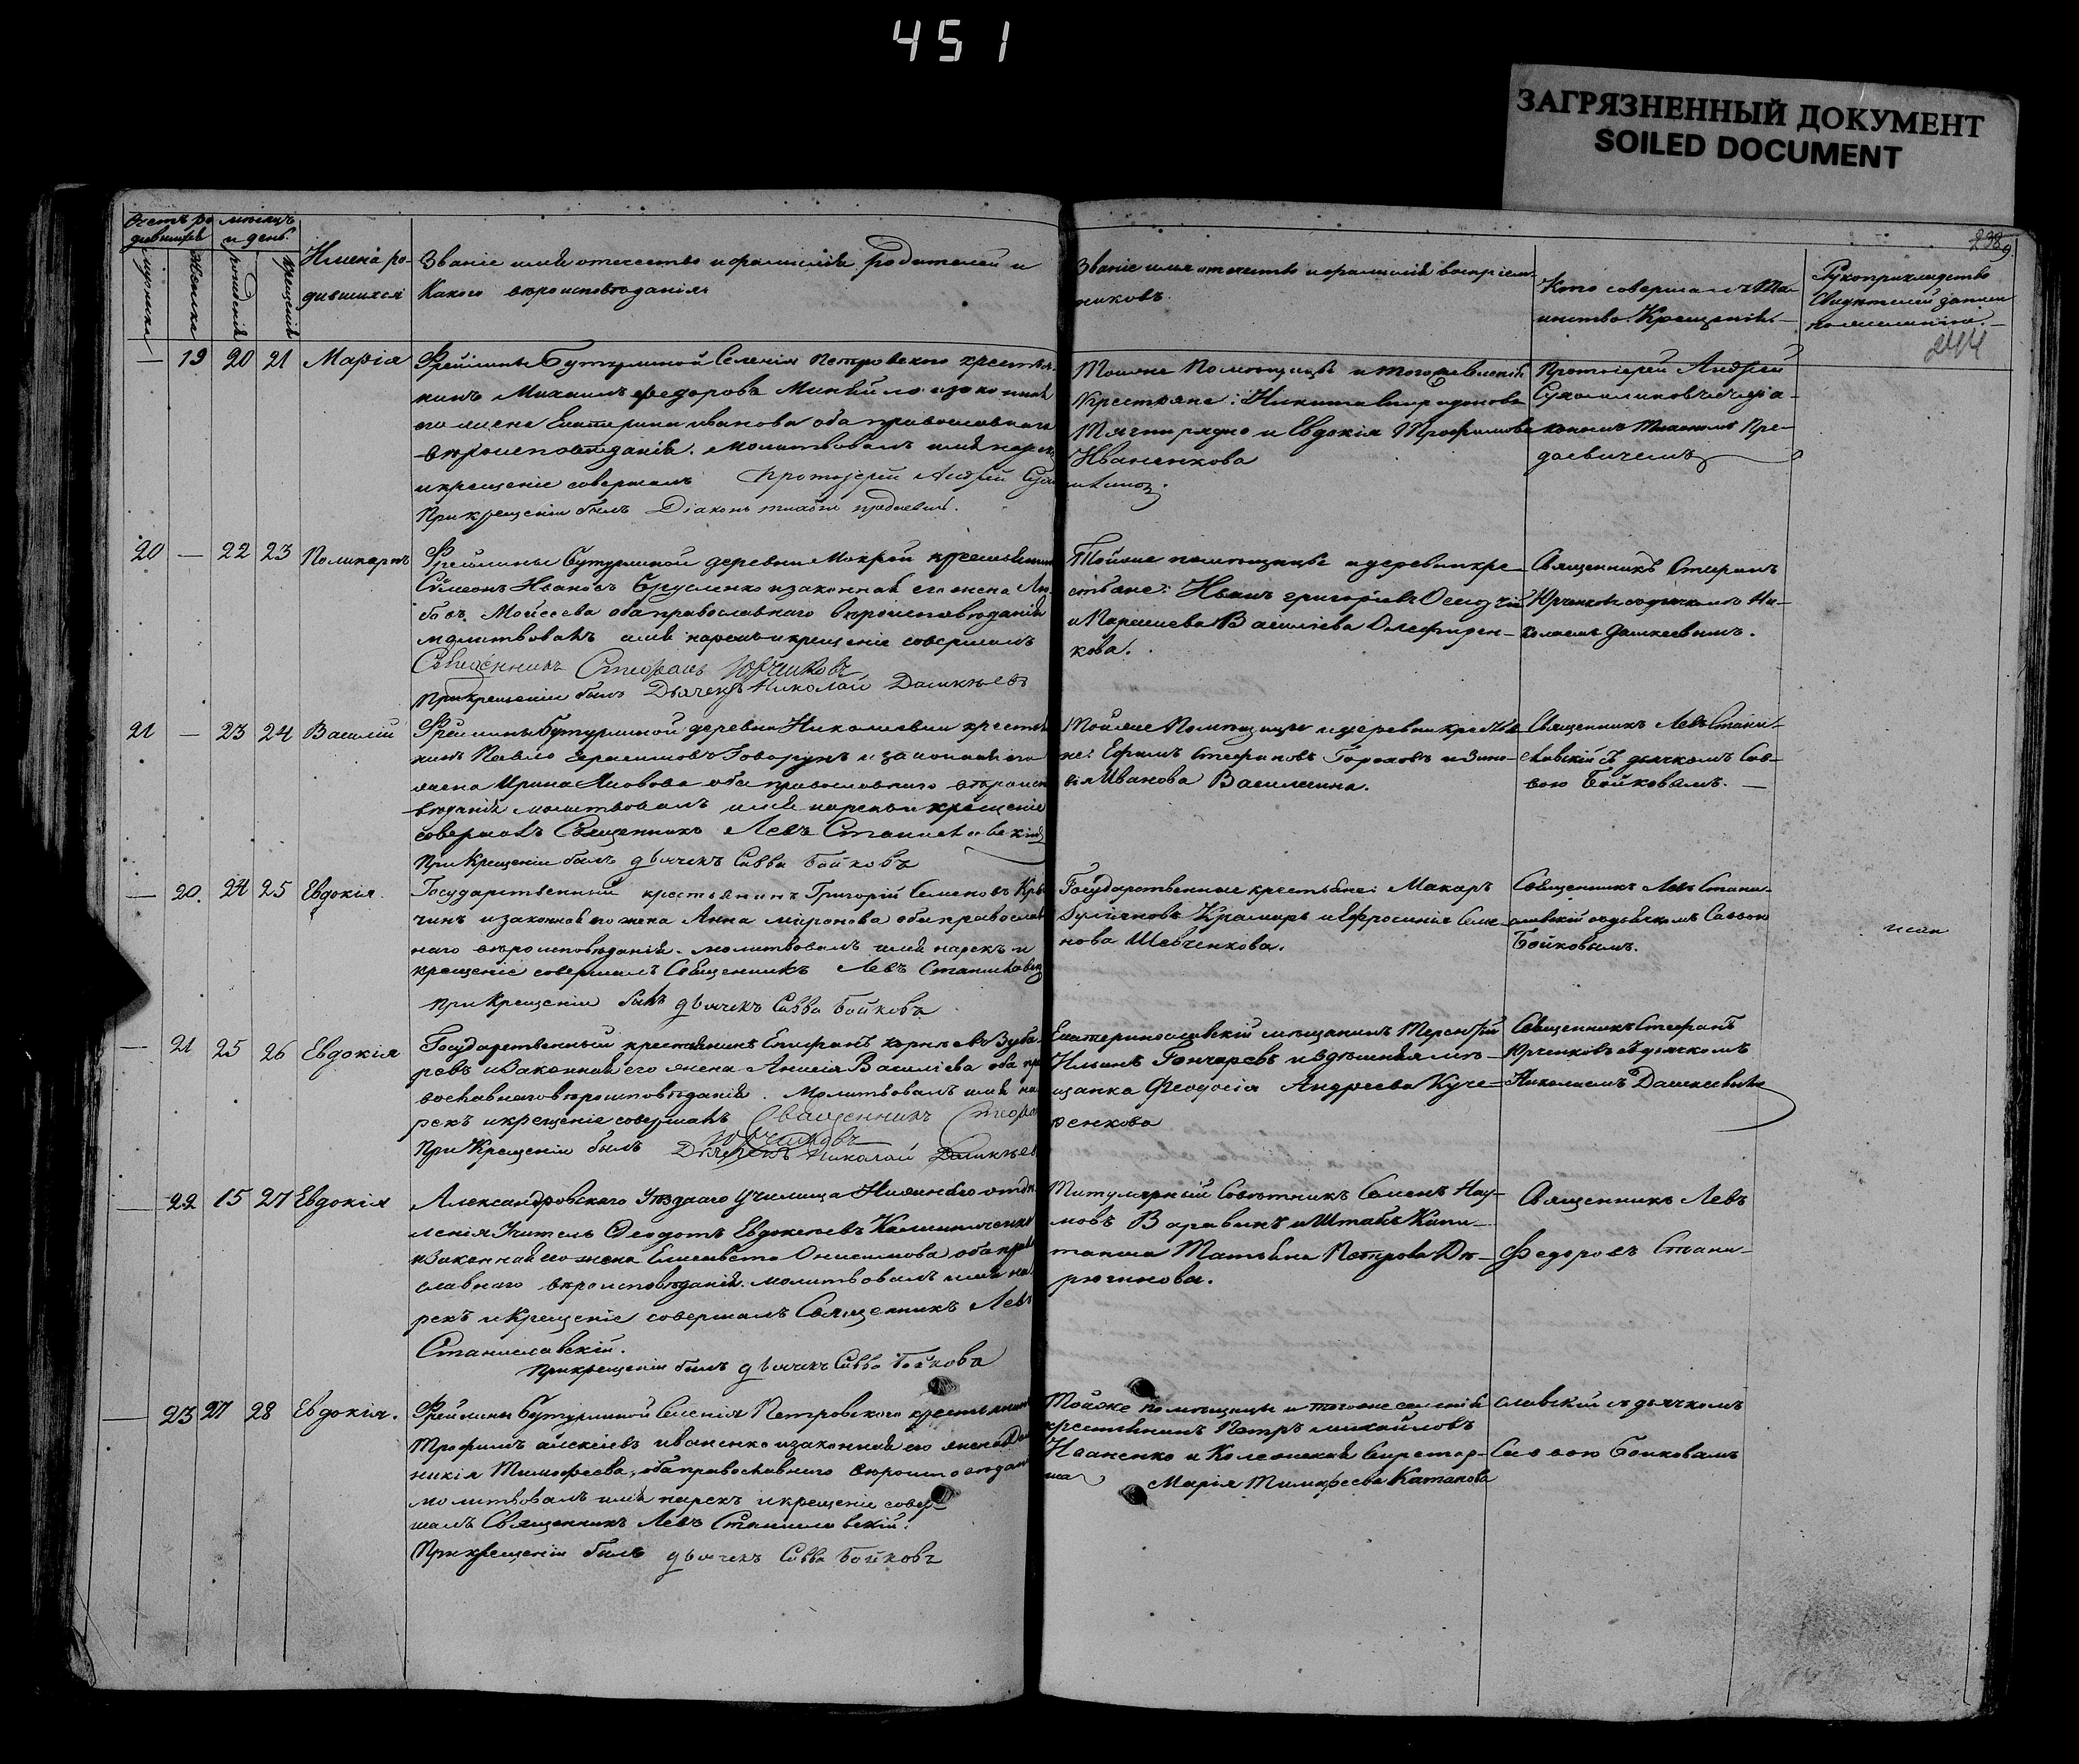 451
ЗАГРЯЗНЕННЫЙ ДОКУМЕНТ
SOILED DOCUMENT
244
Счетъ ро
дившихся
мужеска
женска
мѣсяцъ
и день.
рожденія
крещенія
Имена ро-
дившихся
Званіе имя отечество и фамилія родителей и
какого вѣроисповѣданія
Званіе имя отечество и фамилія воспріем-
никовъ
Кто совершалъ та-
инство Крещенія.
Рукоприкладство
свидѣтелей записи
по желанію.
— 19 20 21 Марія
Фрейлины Бутурлиной Селенія Петровскаго крестья-
нинъ Михаилъ Федоровъ и законная
его жена Екатерина Иванова оба православнаго
вѣроисповѣданія. Молитвовалъ имя нарекъ
и крещеніе совершалъ Протоіерей Андрей
При крещеніи былъ Діаконъ
Тойже Помѣщицы и тогоже селенія
Крестьяне: Никита Спиридоновъ
и Евдокія Трофимова
Иваненкова
Протоіерей Андрей
20 — 22 23 Поликарпъ
Фрейлины Бутурлиной деревни Мокрой крестьянинъ
Симеонъ Ивановъ Брусленко и законная его жена Лю-
бовь Мойсеева оба православнаго вѣроисповѣданія
молитвовалъ имя нарекъ и крещеніе совершалъ
Священникъ Стефанъ Юрченковъ
При крещеніи былъ Дьячекъ Николай Дашкѣевъ
Тойже помѣщицы и деревни кре-
стьяне: Иванъ Григорьевъ
и Парасцева Василіева Олефирен-
кова.
Священникъ Стефанъ
Юрченковъ съ дьячкомъ Ни-
колаемъ Дашкеевымъ.
21 — 23 24 Василій
Фрейлины Бутурлиной деревни Николаевки крестья-
нинъ Павло Герасимовъ Говорунъ и законная его
жена Ирина Львова оба православнаго вѣроиспо-
вѣданія молитвовалъ имя нарекъ и крещеніе
совершалъ Священникъ Левъ Станиславскій
При Крещеніи былъ дьячекъ Савва Бойковъ
Тойже Помѣщицы и деревни крестья-
не: Ефимъ Стефановъ Гороховъ и Зино-
вія Иванова Василинина.
Священникъ Левъ Стани-
славскій съ дьячкомъ Сав-
вою Бойковымъ. —
— 20. 24 25 Евдокія
Государственный крестьянинъ Григорій Семеновъ
чинъ и законная его жена Анна Миронова оба православ-
наго вѣроисповѣданія. молитвовалъ имя нарекъ и
крещеніе совершалъ Священникъ Левъ Станиславскій
При Крещеніи былъ дьячекъ Савва Бойковъ
Государственные крестьяне: Макаръ
Крамаръ и Ефросинія Семе-
нова Шевченкова.
Священникъ Левъ Стани-
славскій съ дьячкомъ Саввою
Бойковымъ.
— 21 25 26 Евдокія
Государственный крестьянинъ Епифанъ Корнѣевъ Зуба-
ревъ и Законная его жена Анисія Василіева оба пра-
вославнаго вѣроисповѣданія. Молитвовалъ имя на-
рекъ и крещеніе совершалъ Священникъ Стефанъ
Юрченковъ
При Крещеніи былъ Дьячекъ Николай Дашкѣевъ
Екатеринославскій мѣщанинъ Терентій
Ильинъ Гончаревъ и здѣшняя мѣ-
щанка Феодосія Андреева Куче-
ренкова
Священникъ Стефанъ
Юрченковъ съ дьячкомъ
Николаемъ Дашкеевымъ
— 22 15 27 Евдокія
Александровскаго Уѣзднаго Училища Нижняго отдѣ-
ленія Учитель Феодотъ Евдокимовъ Калиниченко
и Законная его жена Елисавета Онисимова оба право-
славнаго вѣроисповѣданія. молитвовалъ имя на-
рекъ и Крещеніе совершалъ Священникъ Левъ
Станиславскій.
При крещеніи былъ дьячекъ Савва Бойковъ
Титулярный Совѣтникъ Семенъ Нау-
мовъ Варавинъ и Штабъ Капи-
танша Татьяна Петрова Дѣ-
рюгинова.
Священникъ Левъ
Федоровъ Стани-
— 23 27 28 Евдокія.
Фрейлины Бутурлиной Селенія Петровскаго крестьянинъ
Трофимъ Алексіевъ Иваненко и законная его жена До-
никія Тимофеева, оба православнаго вѣроисповѣданія
молитвовалъ имя нарекъ и крещеніе совер-
шалъ Священникъ Левъ Станиславскій.
При крещеніи былъ дьячекъ Савва Бойковъ
Тойже помѣщицы и тогоже селенія
крестьянинъ Петръ Михайловъ
Иваненко и Секретар-
ша Марія Тимофеева Катанова
славскій съ дьячкомъ
Саввою Бойковымъ